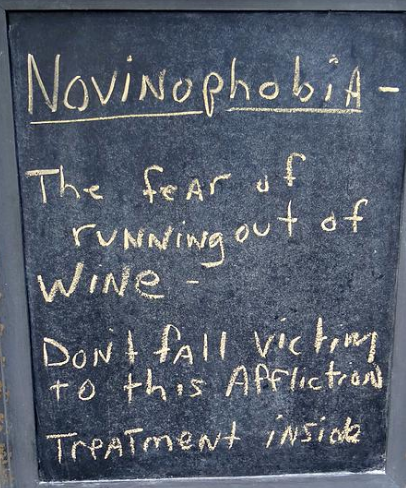 Novinophobia -
The fear of
running out of
wine -
Don't fall victim
to this Affliction
Treatment inside